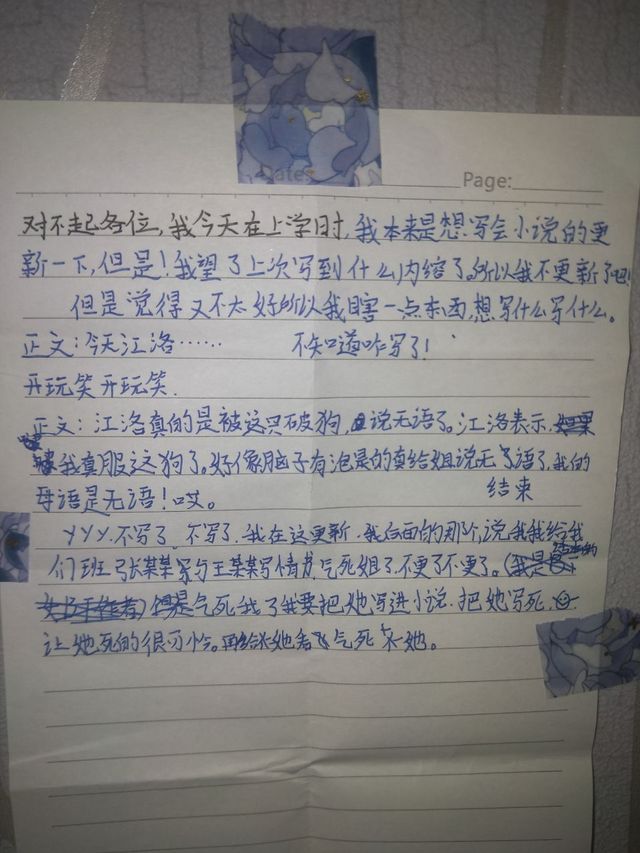 Date:
Page:
对不起各位,我今天在上学时,我本来是想写会小说的更
新一下,但是!我望了上次写到什么内容了,所以我不更新了吧!
但是觉得又不太好所以我瞎一点东西,想写什么写什么。
正文:今天江洛…… 不知道咋写了!
开玩笑开玩笑.
正文:江洛真的是被这只破狗,说无语了。江洛表示,
我真服这狗了。好像脑子有泡是的真给姐说无语了,我的
母语是无语!哎。 结束
YYY.不写了。不写了,我在这更新,我后面的那个,说我我给我
们班张某某写与王某某写情书,气死姐了.不更了不更了。(我是
气死我了我要把她写进小说.把她写死.
让她死的很可怜。再给她看气死她。